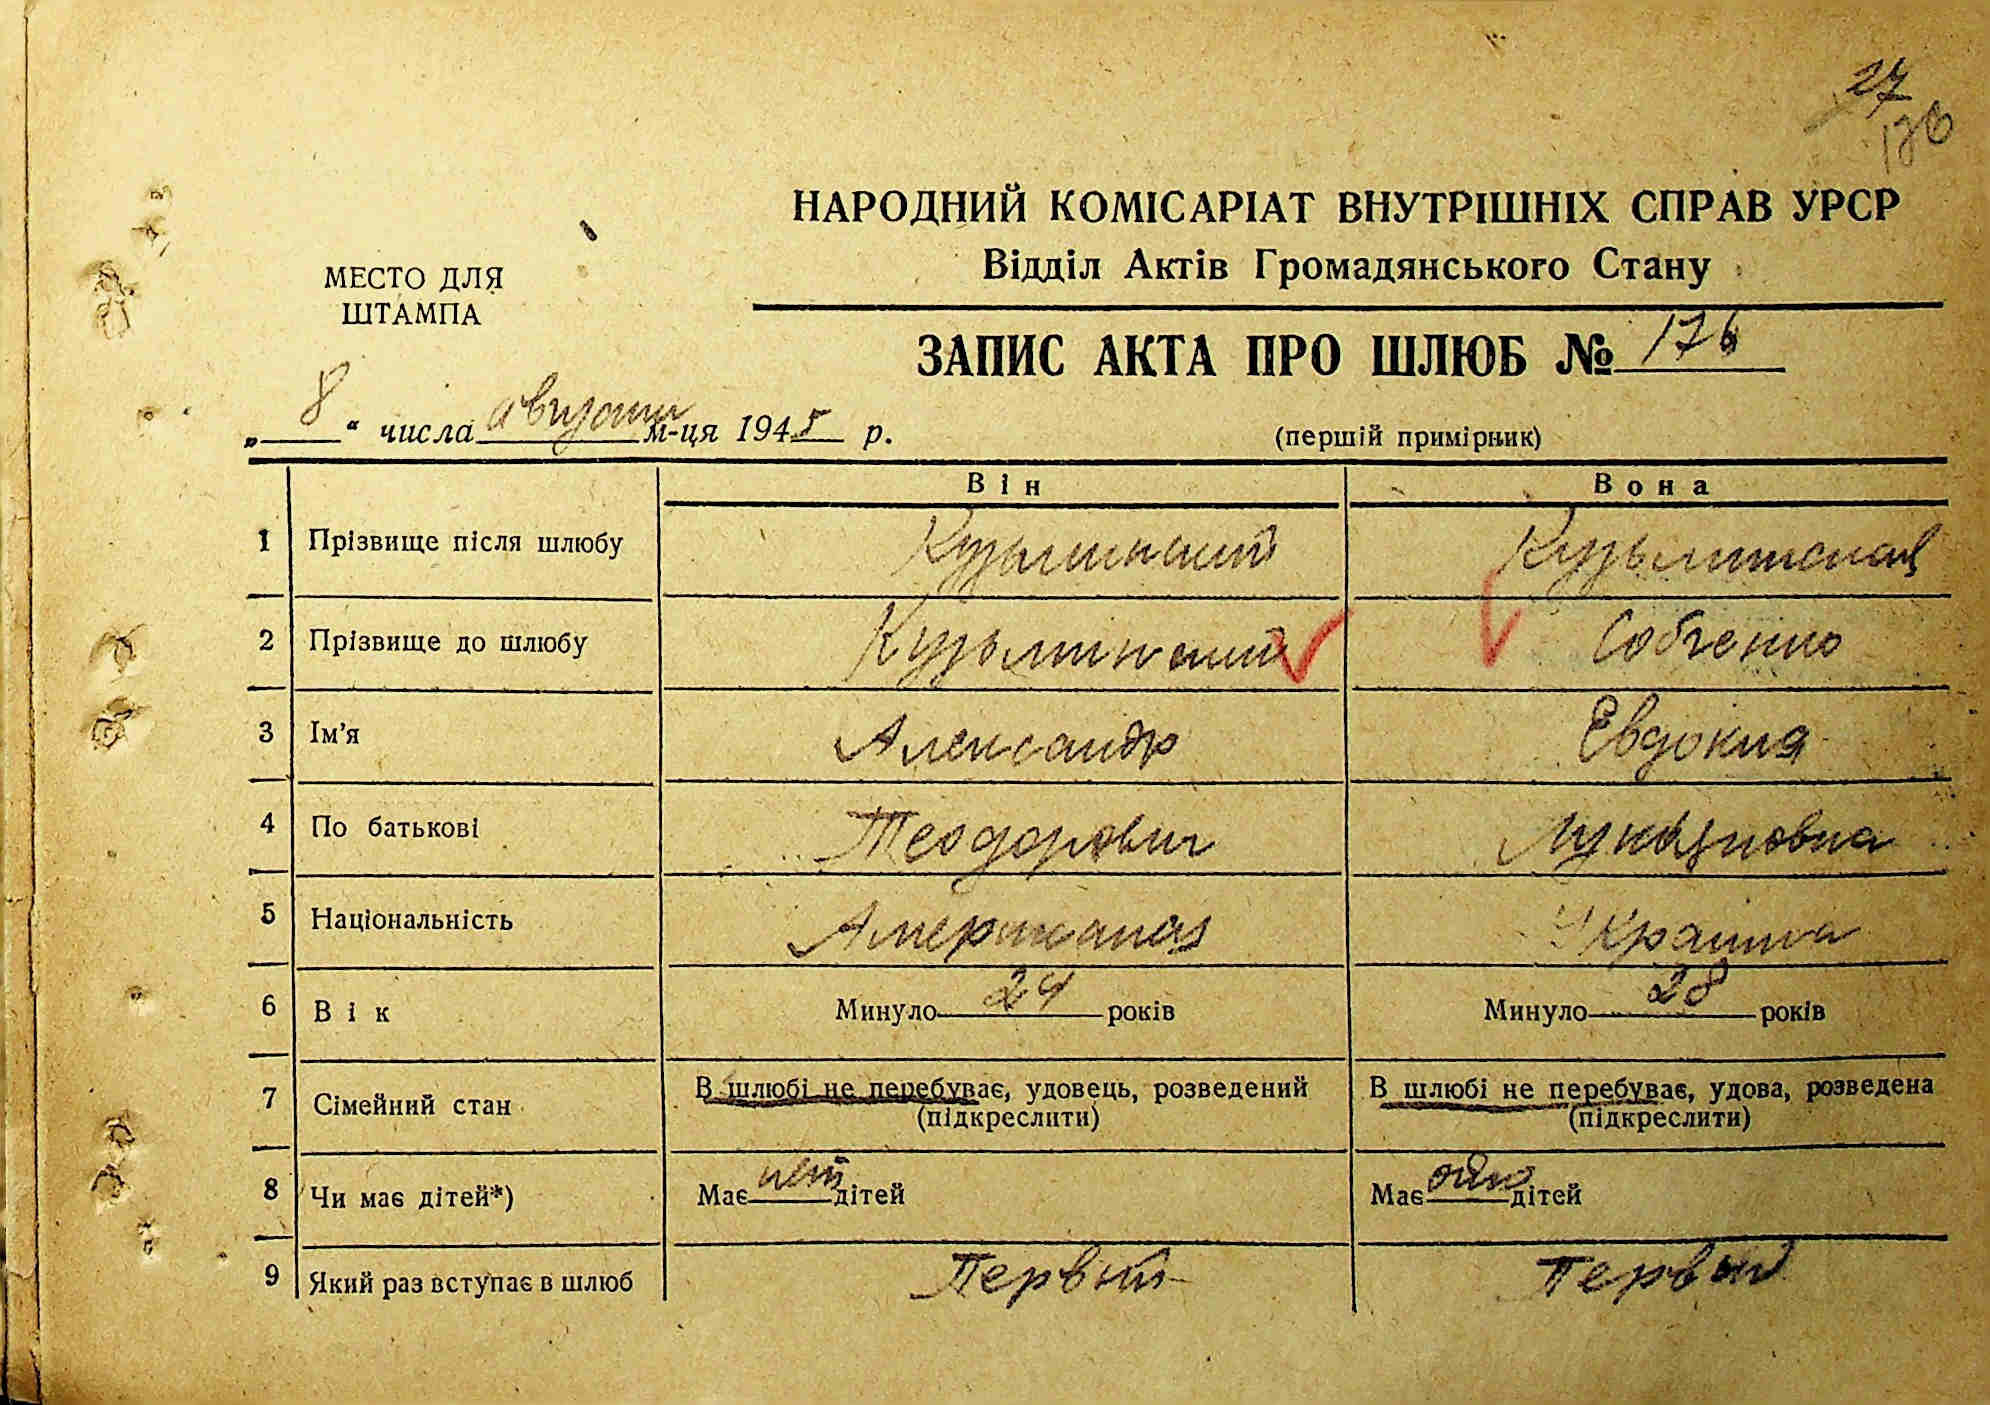 27
176
НАРОДНИЙ КОМІСАРІАТ ВНУТРІШНІХ СПРАВ УРСР
Відділ Актів Громадянського Стану
МЕСТО ДЛЯ
ШТАМПА
ЗАПИС АКТА ПРО ШЛЮБ № 176
„ 8 “ числа августа м-ця 1945 р.
(першій примірник)
Він Вона
1 Прізвище після шлюбу Кузьминский Кузьминская
2 Прізвище до шлюбу Кузьминский Собченко
3 Ім'я Александр Евдокия
4 По батькові Теодорович Лукьяновна
5 Національність Украинка
6 Вік Минуло 24 років Минуло 28 років
7 Сімейний стан В шлюбі не перебуває, удовець, розведений В шлюбі не перебуває, удова, розведена
(підкреслити) (підкреслити)
8 Чи має дітей*) Має нет дітей Має одно дітей
9 Який раз вступає в шлюб Первый Первый